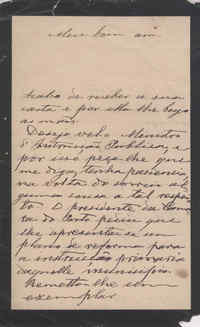 Meu bom am.
Acabo de receber a sua
carta e por ella lhe beijo
as mãos.
Desejo vel-o Ministro
d'Instrucção Publica, e
por isso peço-lhe que
me diga, tenha paciencia,
na volta do correio al
guma cousa a tal respei
to. O presidente da Cama
ra do Porto pediu que
lhe apresentasse um
plano de reforma para
a instrucção primaria
daquelle municipio.
Remetto-lhe um
exemplar